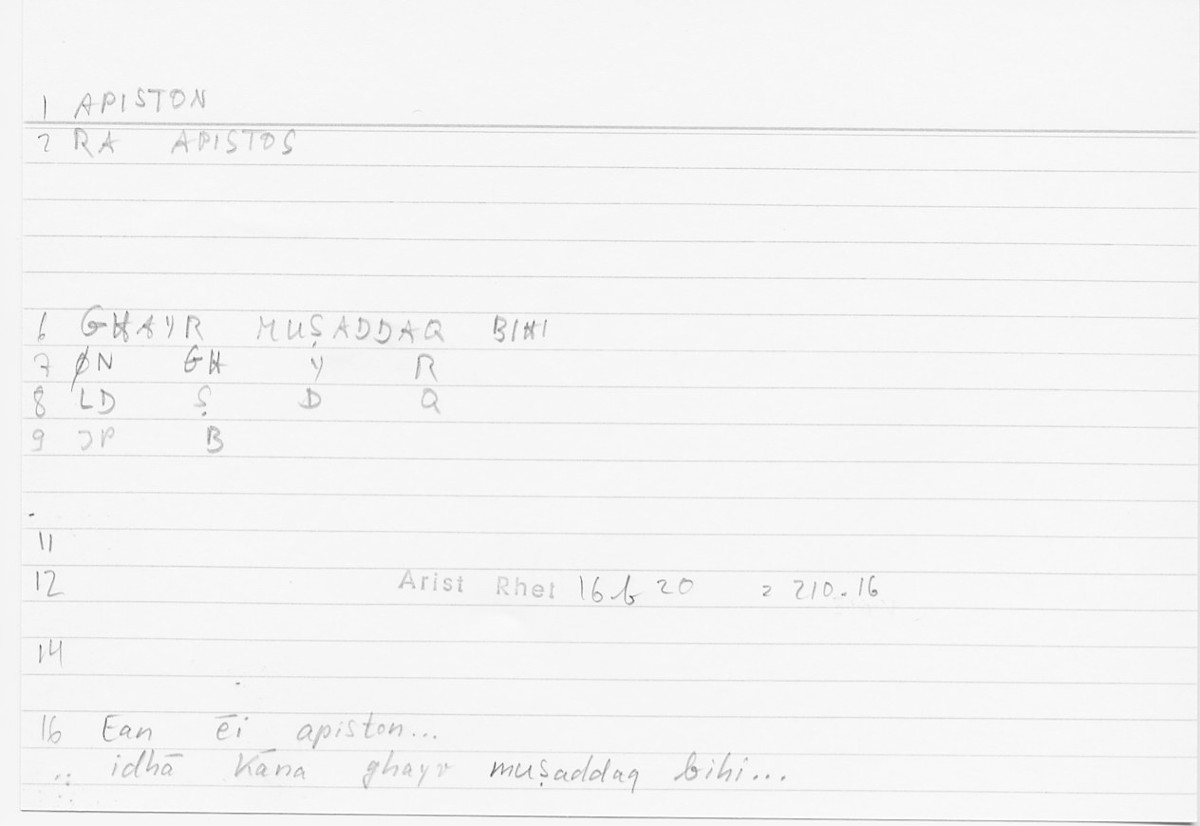 1 APISTON
2 RA APISTOS
6 GHAYR MUṢADDAQ BIHI
7 ØN GH Y R
8 LD Ṣ D Q
9 JP B
11
12 Arist Rhet 16b20 = 210.16
14
16 Ean ēi apiston...
idhā kāna ghayr muṣaddaq bihi...